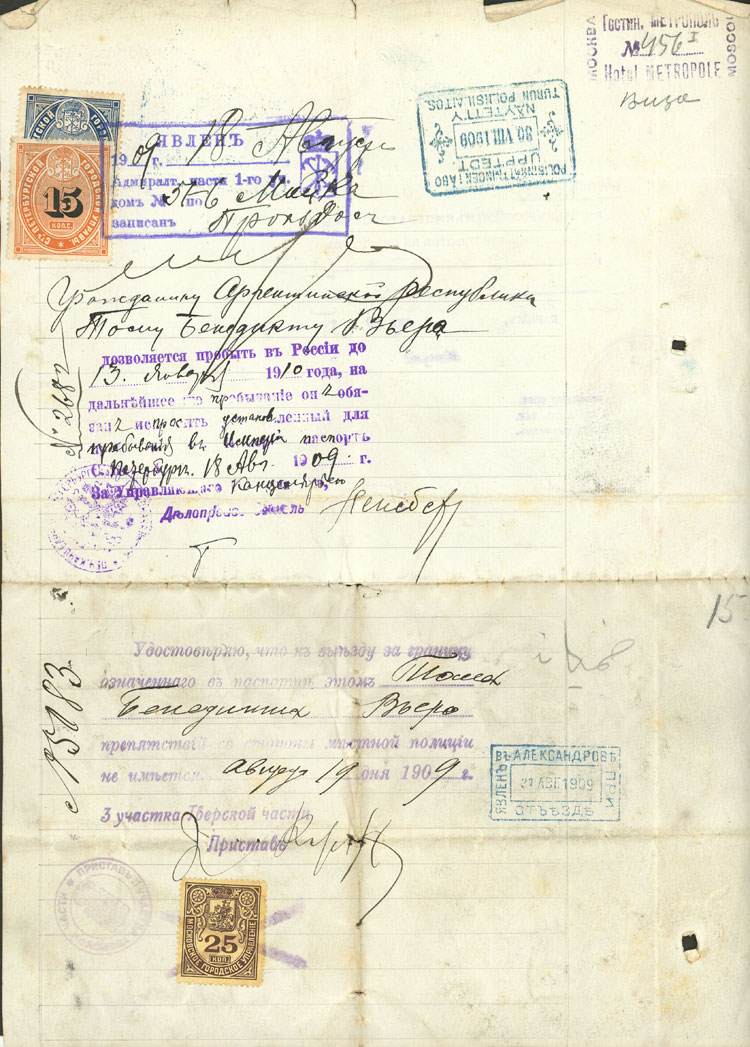 Гостин. МЕТРОПОЛЬ
МОСКВА
№ 456 I
MOSCOU
Hotel METROPOLE
Виза
POLISINRÄTTNINGEN I ÅBO
UPPTEDT
30 VIII 1909
NÄYTETTY
TURUN POLIISILAITOS.
ГОРОДСКОЙ
15
КОПЕ.
С.-ПЕТЕРБУРГСКОЙ ГОРОДСКОЙ УПРАВЫ
ЯВЛЕНЪ
1909 г. 18 Август
Адмиралт. части 1-го уч.
домъ № по Мойка
записанъ
Гражданину Аргентинской республики
Тому Бенедикту Вьера
№ 2682
дозволяется пробыть въ Россіи до
13. Января 1910 года, на
дальнѣйшее его пребываніе онъ обя-
занъ испросить установленный для
пребыванія въ Имперіи паспортъ
С. Петербургъ. 18 Авг. 1909. г.
За Управляющаго Канцеляріею
Дѣлопроизводитель
15
№ 5183
Удостовѣряю, что къ выѣзду за границу
означеннаго въ паспортѣ этомъ Тома
Бенедикта Вьера
препятствій со стороны мѣстной полиціи
не имѣется. Августа 19 дня 1909 г.
3 участка Тверской части,
Приставъ
ЯВЛЕНЪ ВЪ АЛЕКСАНДРОВѢ ПРИ
21 АВГ 1909
ОТЪѢЗДѢ
ПРИСТАВЪ
ЧАСТИ
МОСКОВСКОЕ ГОРОДСКОЕ УПРАВЛЕНІЕ
25
КОП.